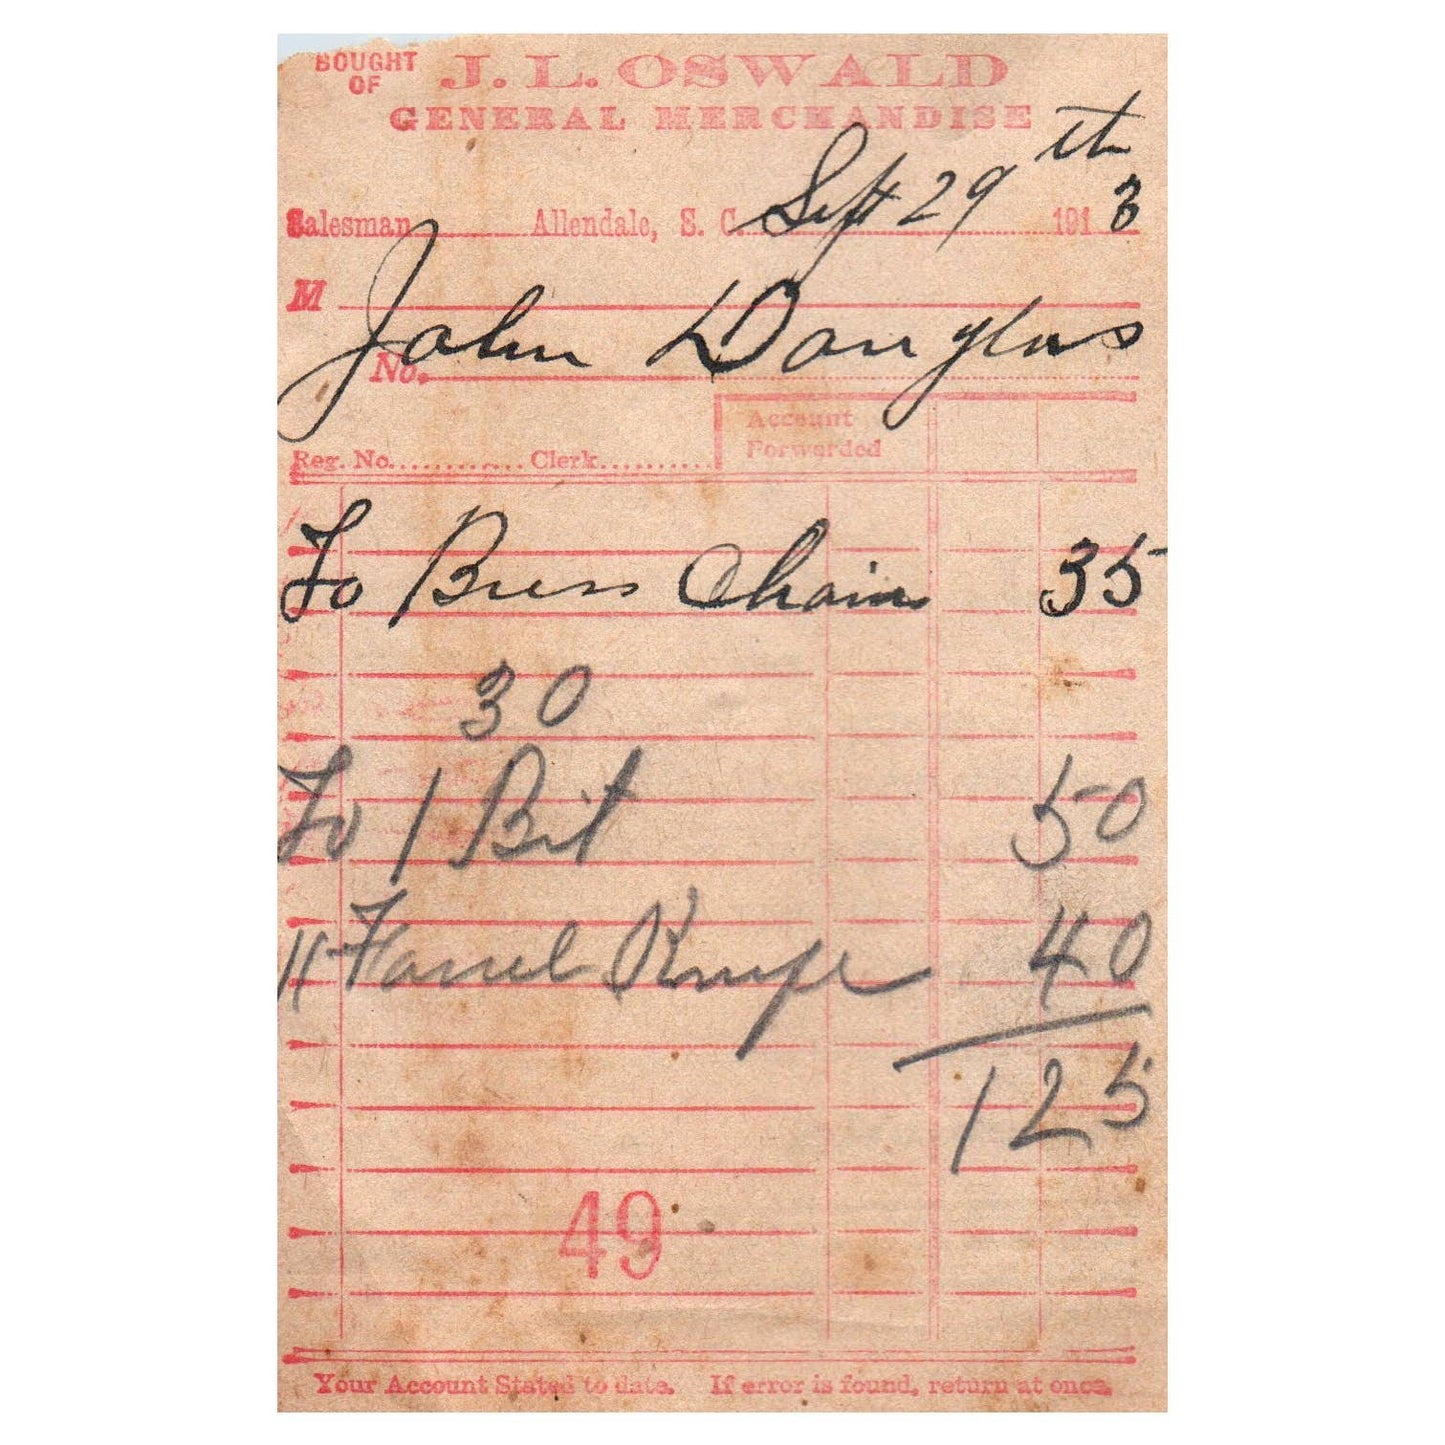 BOUGHT OF J. L. OSWALD
GENERAL MERCHANDISE
Salesman Allendale, S. C. Sept 29th 1913
M John Douglas
No.
Account Forwarded
Reg. No. Clerk
To Chain 35
30
To 1 Bit 50
" 40
125
49
Your Account Stated to date. If error is found, return at once.